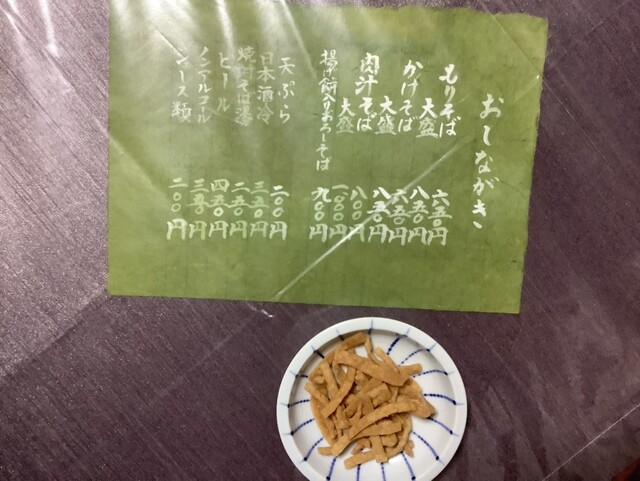 おしながき
もりそば 六五〇円
大盛 八五〇円
かけそば 六五〇円
大盛 八五〇円
肉汁そば 八〇〇円
大盛 一〇〇〇円
揚げ餅入りおろしそば 九〇〇円
天ぷら 二〇〇円
日本酒冷 三五〇円
焼酎そば湯 二五〇円
ビール 四五〇円
ノンアルコール 三五〇円
ジュース類 二〇〇円